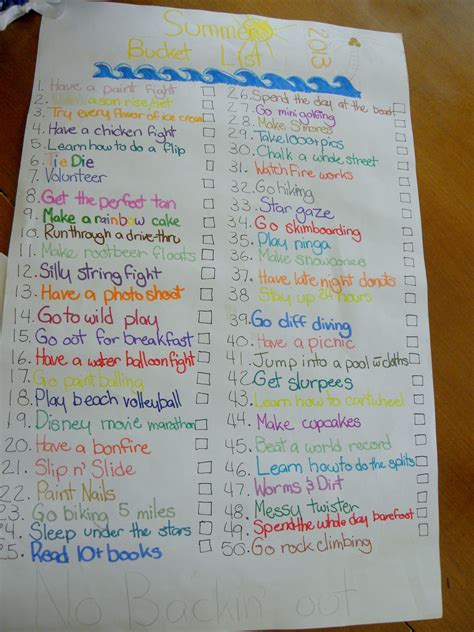 Summer
Bucket List
2013
1. Have a paint fight
2. a sun rise/set
3. Try every flavor of ice cream
4. Have a chicken fight
5. Learn how to do a flip
6. Tie Die
7. Volunteer
8. Get the perfect tan
9. Make a rainbow cake
10. Run through a drive thru
11. Make rootbeer floats
12. Silly string fight
13. Have a photo shoot
14. Go to wild play
15. Go out for breakfast
16. Have a water balloon fight
17. Go paint balling
18. Play beach volleyball
19. Disney movie marathon
20. Have a bonfire
21. Slip n' Slide
22. Paint Nails
23. Go biking 5 miles
24. Sleep under the stars
25. Read 10+ books
26. Spend the day at the
27. Go mini golfing
28. Make S'mores
29. Take 1000+ pics
30. Chalk a whole street
31. Watch Fire works
32. Go hiking
33. Star gaze
34. Go skimboarding
35. Play ninga
36. Make snowcones
37. Have late night donuts
38 Stay up 24 hours
39. Go cliff diving
40. Have a picnic
41. Jump into a pool w cloths
42. Get slurpees
43. Learn how to cartwheel
44. Make cupcakes
45. Beat a world record
46. Learn how to do the splits
47. Worms & Dirt
48. Messy twister
49. Spend the whole day barefoot
50. Go rock climbing
No Backin' out